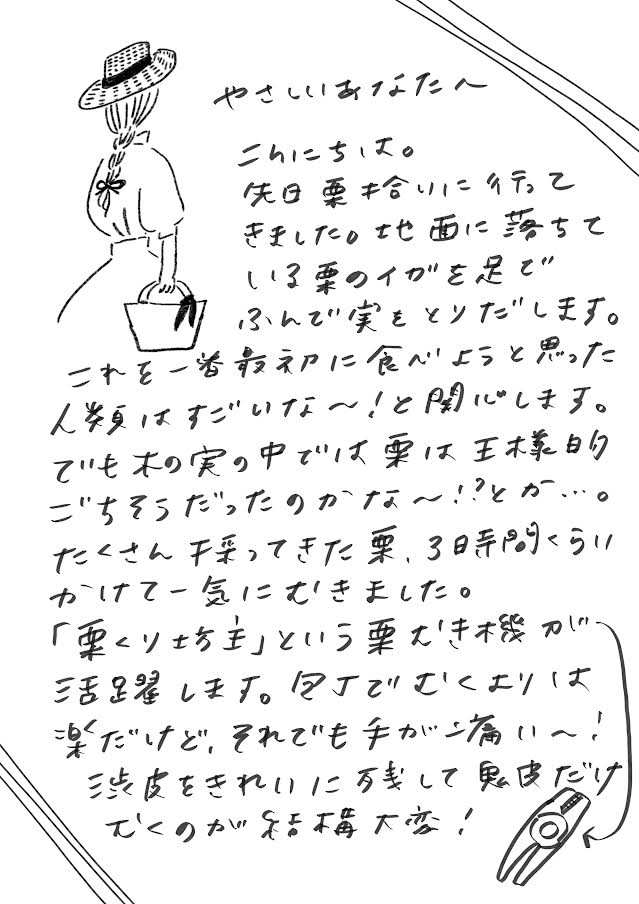 やさしいあなたへ
こんにちは。
先日栗拾いに行って
きました。地面に落ちて
いる栗のイガを足で
ふんで実をとりだします。
これを一番最初に食べようと思った
人類はすごいな〜!と関心します。
でも木の実の中では栗は王様的
ごちそうだったのかな〜!?とか…。
たくさん採ってきた栗、3時間くらい
かけて一気にむきました。
「栗くり坊主」という栗むき機が
活躍します。包丁でむくよりは
楽だけど、それでも手が痛い〜!
渋皮をきれいに残して鬼皮だけ
むくのが結構大変!